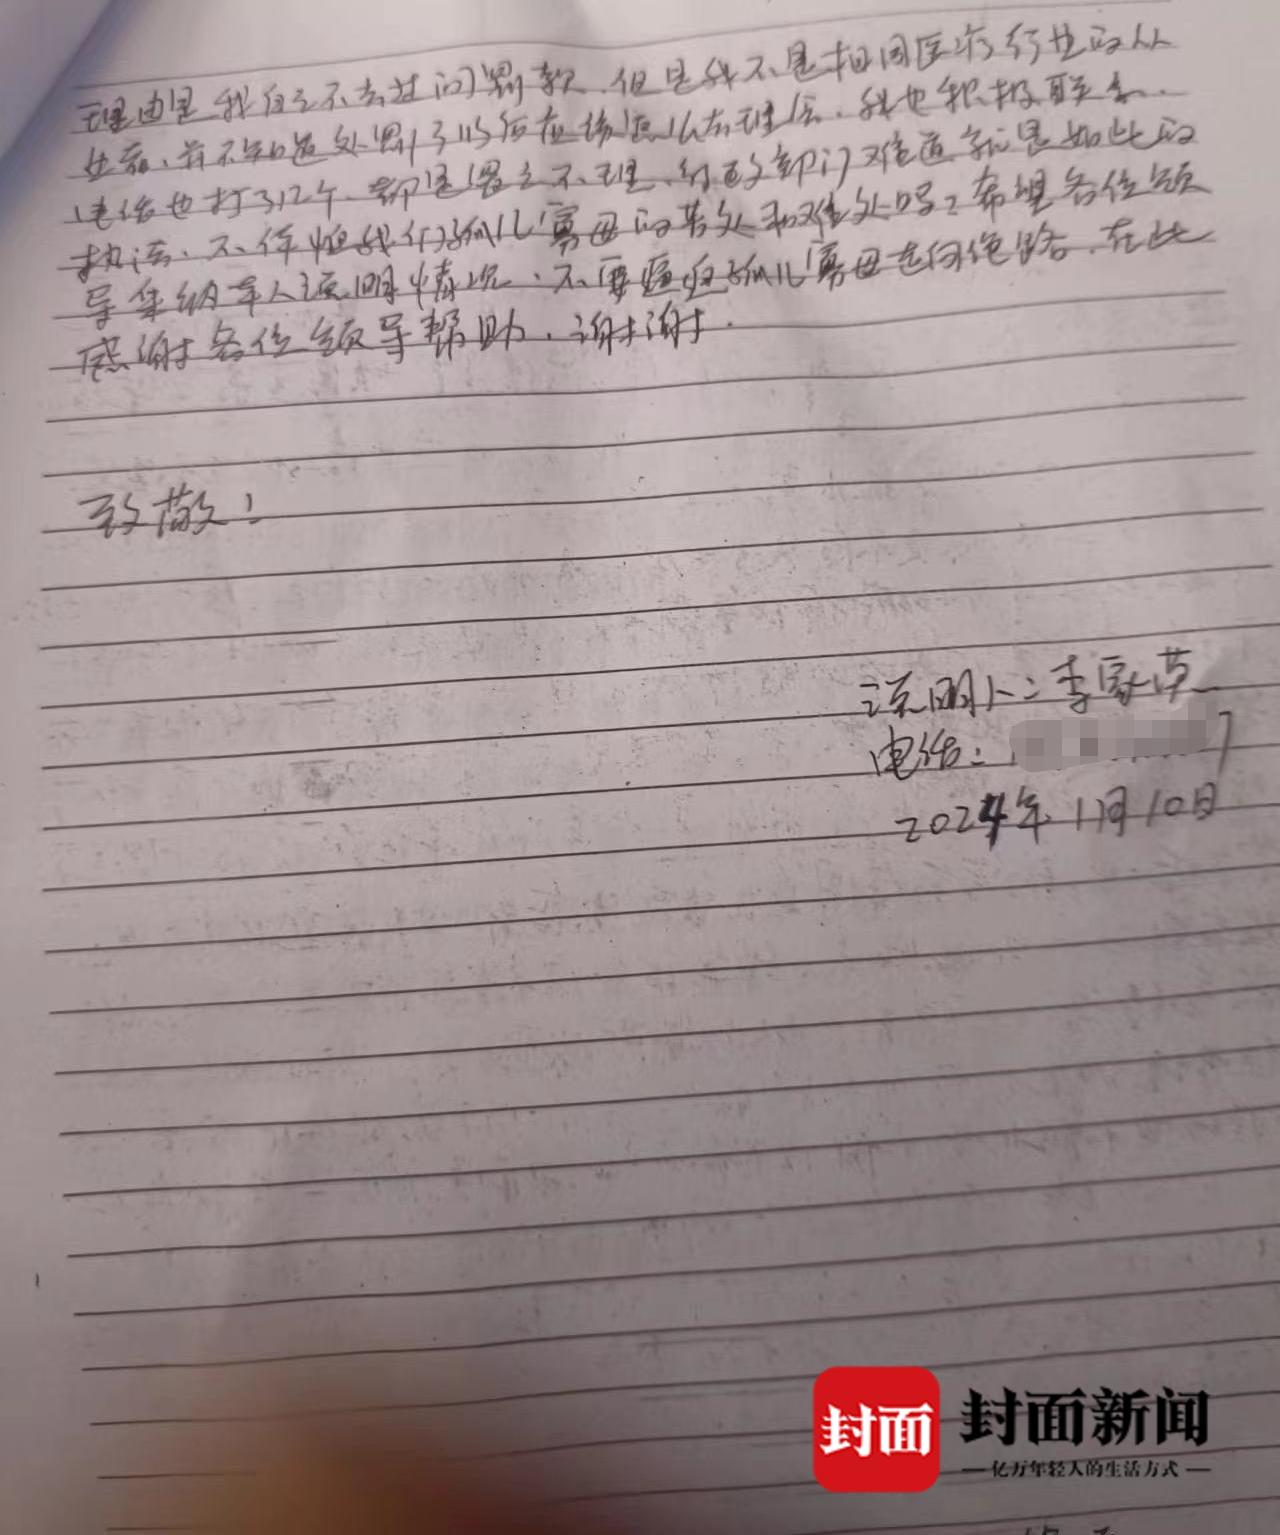 理由是我自己不去过问罚款、但是我不是相同医疗行业的从
业者、并不知道处罚了以后应该怎么去理会、我也积极联系、
电话也打了12个、都是置之不理、行政部门难道就是如此的
执法、不体恤我们孤儿寡母的苦处和难处吗？希望各位领
导采纳本人说明情况、不要逼迫孤儿寡母走向绝路、在此
感谢各位领导帮助、谢谢.
致敬！
说明人：李家萍
电话： 7
2024年11月10日
封面
封面新闻
亿万年轻人的生活方式